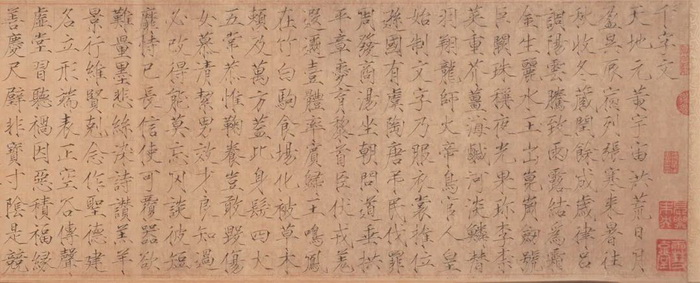 千字文
天地元黃宇宙洪荒日月
盈昃辰宿列張寒來暑往
秋收冬藏閏餘成歲律呂
調陽雲騰致雨露結為霜
金生麗水玉出崑岡劍號
巨闕珠稱夜光果珍李柰
菜重芥薑海鹹河淡鱗潛
羽翔龍師火帝鳥官人皇
始制文字乃服衣裳推位
遜國有虞陶唐弔民伐罪
周發商湯坐朝問道垂拱
平章愛育黎首臣伏戎羌
遐邇壹體率賓歸王鳴鳳
在竹白駒食場化被草木
賴及萬方蓋此身髮四大
五常恭惟鞠養豈敢毀傷
女慕清絜男效才良知過
必改得能莫忘罔談彼短
靡恃己長信使可覆器欲
難量墨悲絲染詩讚羔羊
景行維賢剋念作聖德建
名立形端表正空谷傳聲
虛堂習聽禍因惡積福緣
善慶尺璧非寶寸陰是競